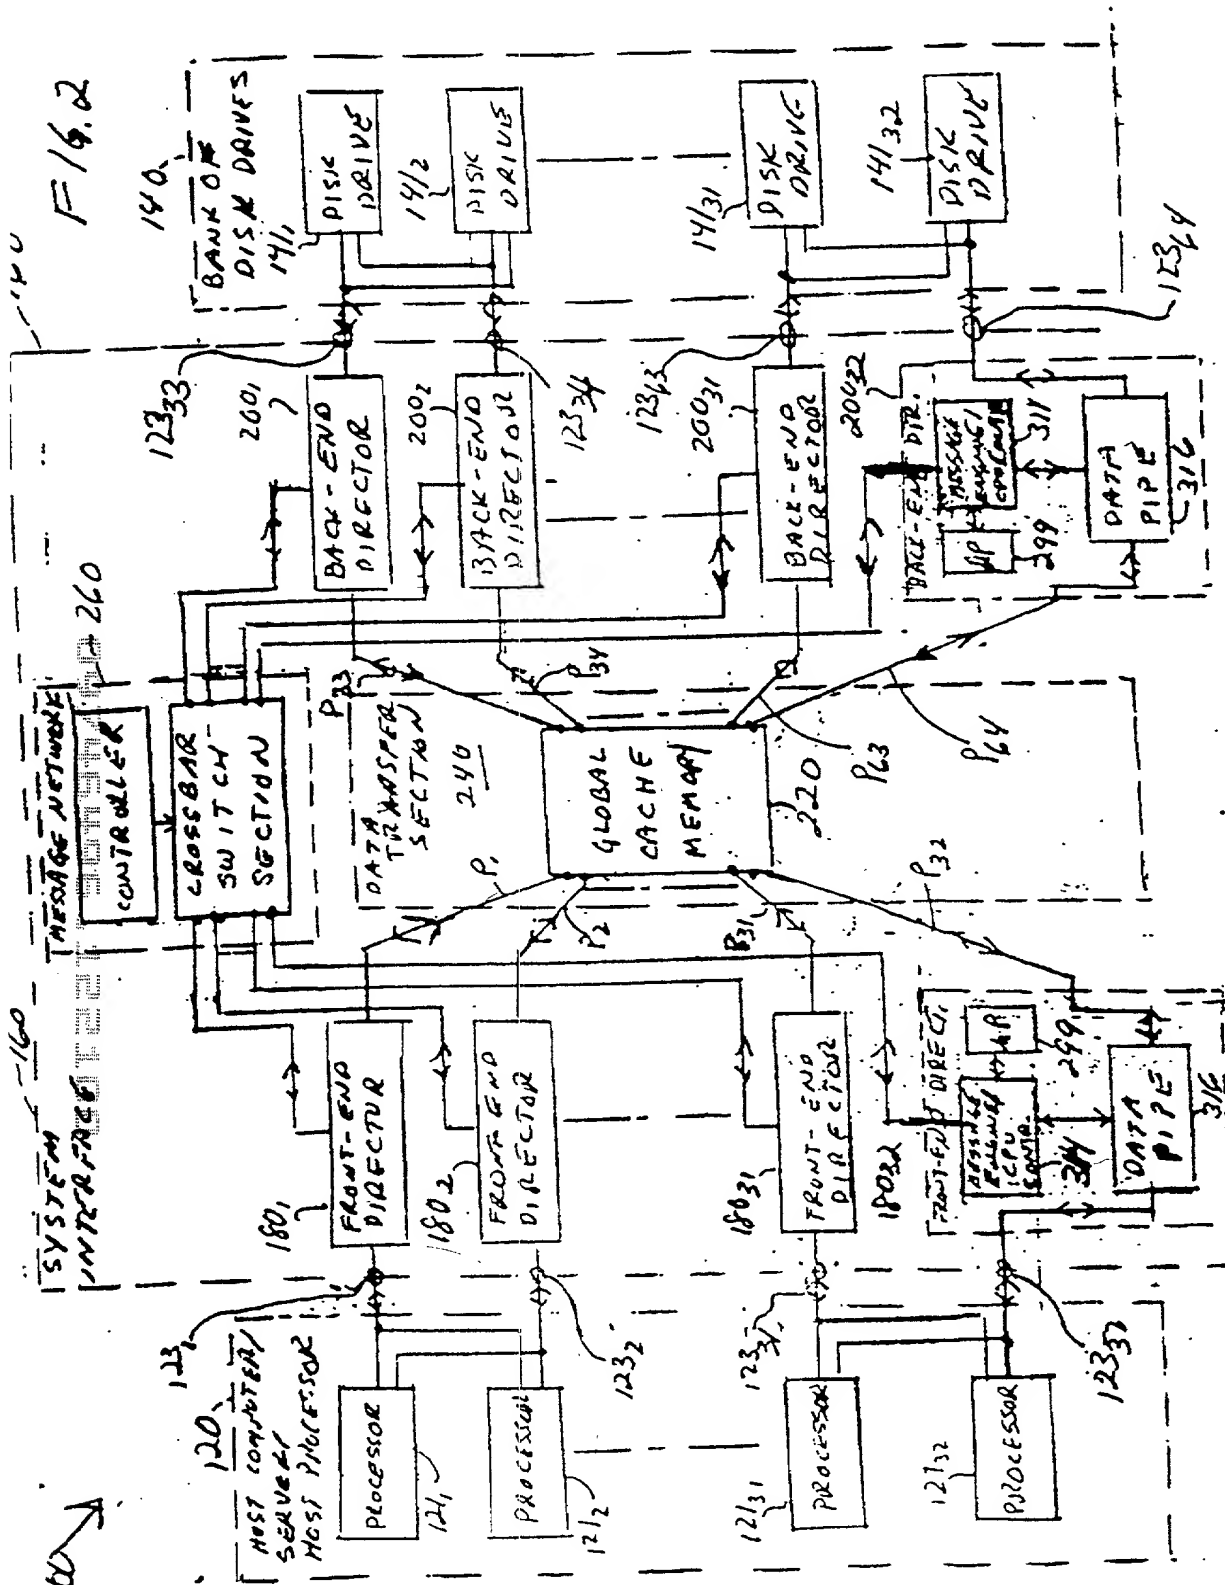 FIG. 2
140
BANK OF
DISK DRIVES
141₁
DISK
DRIVE
141₂
DISK
DRIVE
141₃₁
DISK
DRIVE
141₃₂
DISK
DRIVE
123₃₃
123₃₄
123₆₃
123₆₄
200₁
BACK-END
DIRECTOR
200₂
BACK-END
DIRECTOR
200₃₁
BACK-END
DIRECTOR
200₃₂
BACK-END DIR.
MESSAGE
ENGINE/
299
DATA
PIPE
316
260
MESSAGE NETWORK
CONTROLLER
CROSSBAR
SWITCH
SECTION
DATA
TRANSFER
SECTION
240
GLOBAL
CACHE
MEMORY
220
P₃₄
P₆₃
P₆₄
P₁
P₂
P₃₁
P₃₂
160
SYSTEM
INTERFACE
180₁
FRONT-END
DIRECTOR
180₂
FRONT-END
DIRECTOR
180₃₁
FRONT-END
DIRECTOR
180₃₂
FRONT-END DIRECT.
MESSAGE
ENGINE/
CPU
CONTR.
299
DATA
PIPE
120
HOST COMPUTER/
SERVER/
HOST PROCESSOR
123₁
123₂
123₃₁
123₃₂
PROCESSOR
121₁
PROCESSOR
121₂
PROCESSOR
121₃₁
PROCESSOR
121₃₂